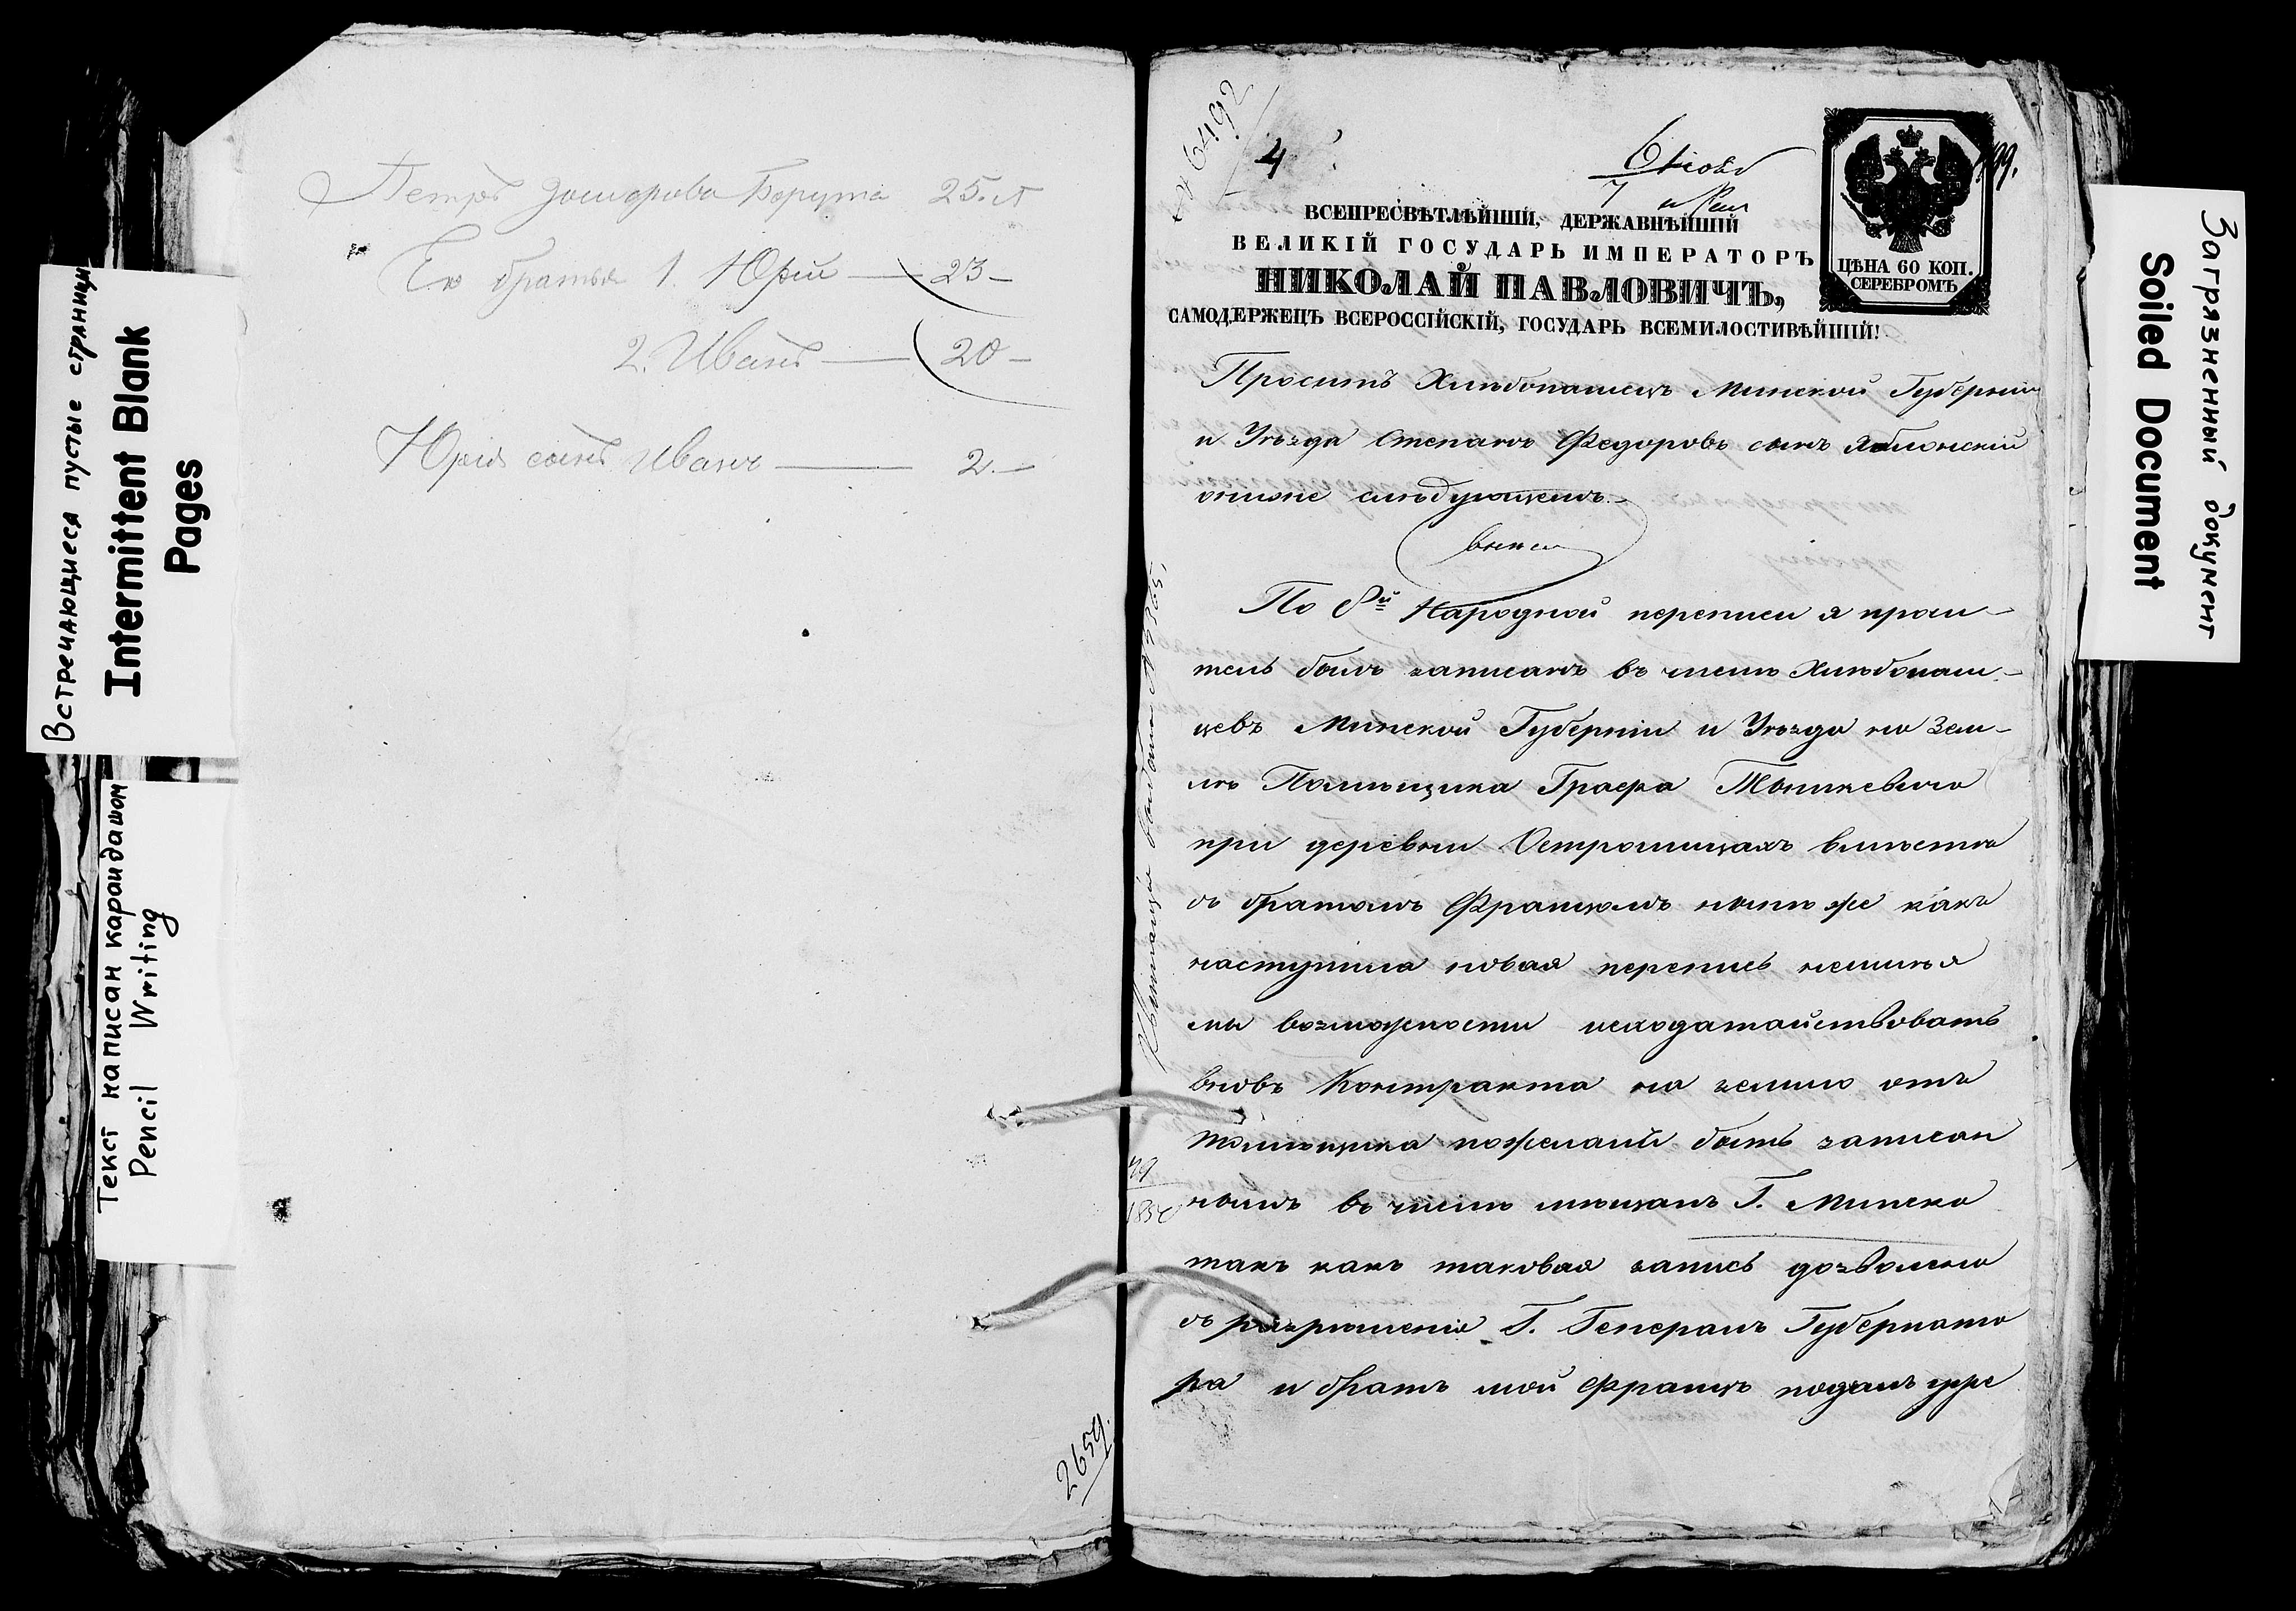 Встречающиеся пустые страницы
Intermittent Blank
Pages
Текст написан карандашом
Pencil Writing
Петръ Борута 25. л
Его братья 1. Юрій — 23 —
2. Иванъ — 20 —
Юрія сынъ Иванъ — 2. —
2659.
№ 6492
4
99.
ВСЕПРЕСВѢТЛѢЙШІЙ, ДЕРЖАВНѢЙШІЙ
ВЕЛИКІЙ ГОСУДАРЬ ИМПЕРАТОРЪ
НИКОЛАЙ ПАВЛОВИЧЪ,
САМОДЕРЖЕЦЪ ВСЕРОССІЙСКІЙ, ГОСУДАРЬ ВСЕМИЛОСТИВѢЙШІЙ!
ЦѢНА 60 КОП.
СЕРЕБРОМЪ
Проситъ Хлѣбопашецъ Минской Губерніи
и Уѣзда Степанъ Федоровъ сынъ Яблонскій
онижеслѣдующемъ. —
По 8й Народной переписи я проси-
тель былъ записанъ въ числѣ Хлѣбопаш-
цевъ Минской Губерніи и Уѣзда на Зем-
лѣ Помѣщика Графа Тышкевича
при деревни Острошицахъ вмѣстѣ
съ братомъ Францомъ нынѣ же какъ
наступила новая перепись неимѣя
мы возможности исходатайствовать
вновь Контракта на землю отъ
Помѣщика пожелали быть записан
нымъ въ число мѣщанъ Г. Минска
такъ какъ таковая запись дозволена
съ разрѣшенія Г. Генералъ Губернато
ра и братъ мой Францъ подалъ уже
Загрязненный документ
Soiled Document